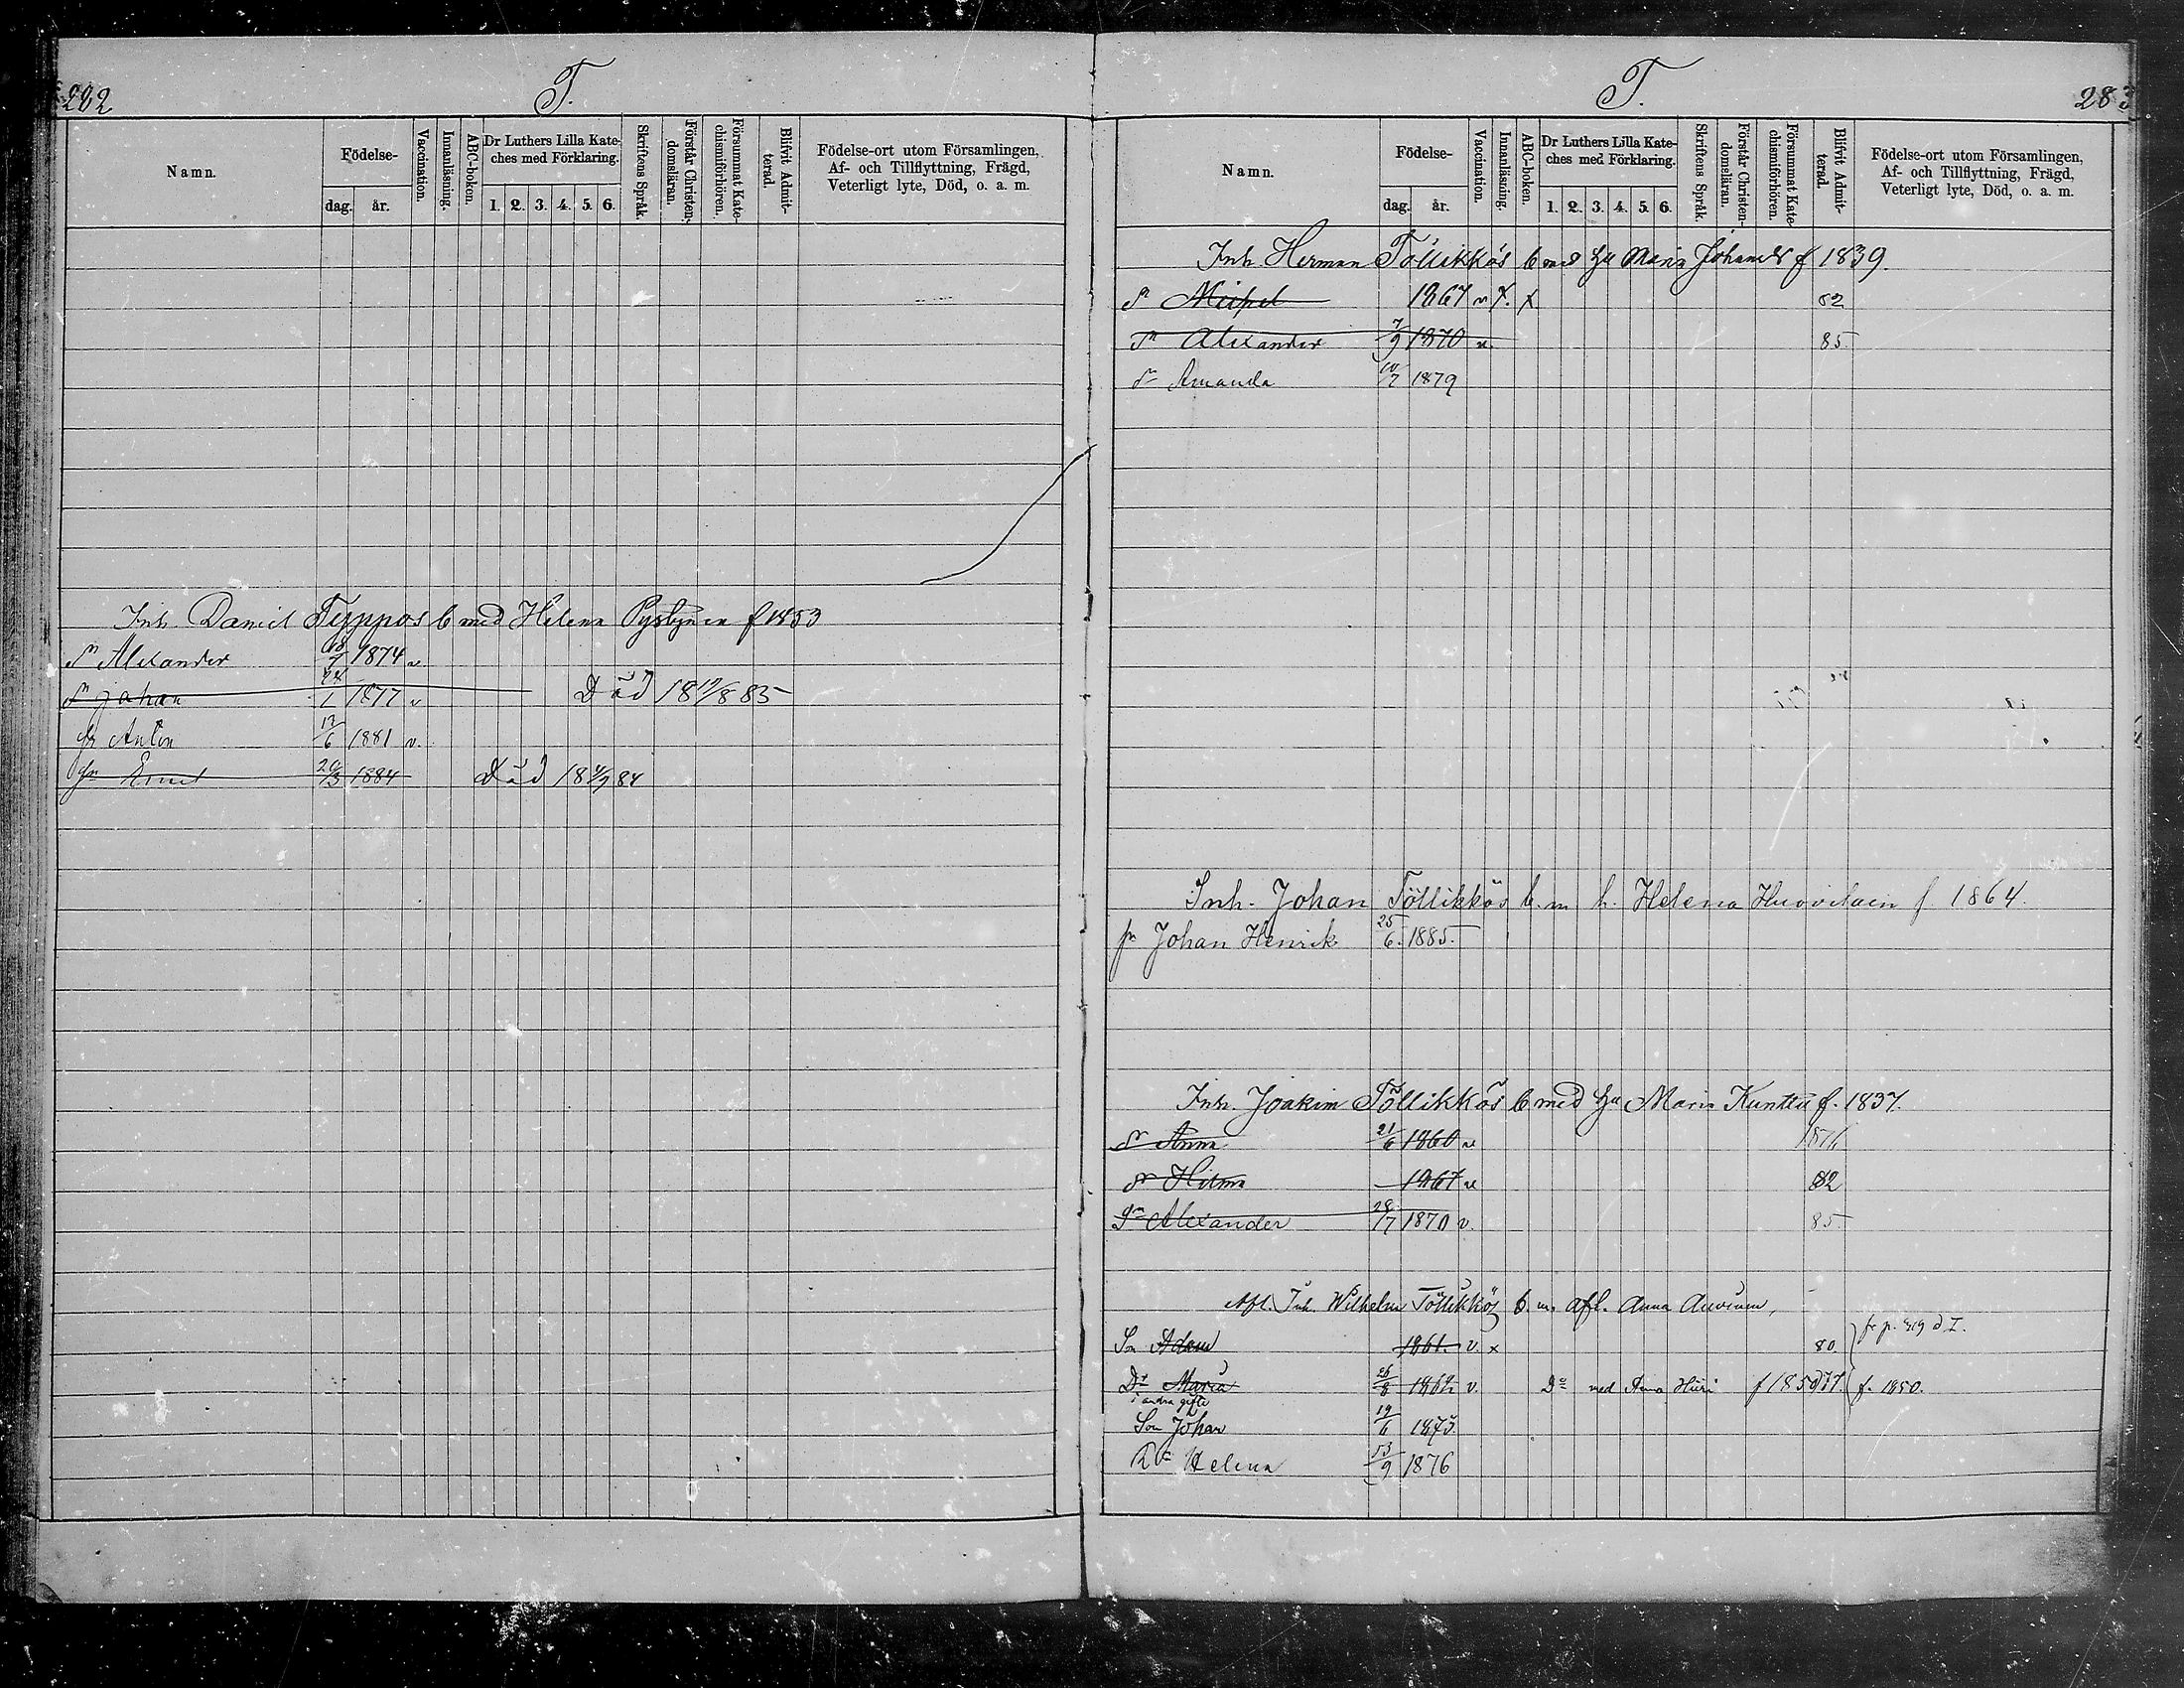 282
T.
Namn.
Födelse-
dag. år.
Vaccination.
Innanläsning.
ABC-boken.
Dr Luthers Lilla Kate-
ches med Förklaring.
1. 2. 3. 4. 5. 6.
Skriftens Språk.
Förstår Christen-
domsläran.
Försummat Kate-
chismiförhören.
Blifvit Admit-
terad.
Födelse-ort utom Församlingen,
Af- och Tillflyttning, Frägd,
Veterligt lyte, Död, o. a. m.
Inh. Daniel Teppos b med Helena f 1853
Sn Alexander 1874 v
Sn Johan 24/1 1877 v Död 18 19/8 83
Sn Anton 12/6 1881 v.
Sn 20/3 1884 Död 18 4/9 84
T.
283
Namn.
Födelse-
dag. år.
Vaccination.
Innanläsning.
ABC-boken.
Dr Luthers Lilla Kate-
ches med Förklaring.
1. 2. 3. 4. 5. 6.
Skriftens Språk.
Förstår Christen-
domsläran.
Försummat Kate-
chismiförhören.
Blifvit Admit-
terad.
Födelse-ort utom Församlingen,
Af- och Tillflyttning, Frägd,
Veterligt lyte, Död, o. a. m.
Inh. Herman Töllikkös b med Hu Maria f 1839.
1867 v x. x 82
Sn Alexander 7/9 1870 v. 85
Amanda 10/7 1879
Inh. Johan Töllikkös b. m h. Helena Huovilain f. 1864.
Sn Johan Henrik 25/6. 1885.
Inh. Joakim Töllikkös b med Hu Maria Kunttu f. 1837.
Anna 21/6 1860 v
Hilma 1867 v 82
Sn Alexander 28/7 1870 v. 85
Afl. Inh. Wilhelm Töllikkös b. m. afl. Anna Auvinen,
Son Adam 1861. v. x 80. fr p. 319 d I.
Dr Maria 26/8 1862 v. Do med Anna Hüri f. 1850.
i andra gifte
Son Johan 19/6 1873
Dr Helena 13/9 1876